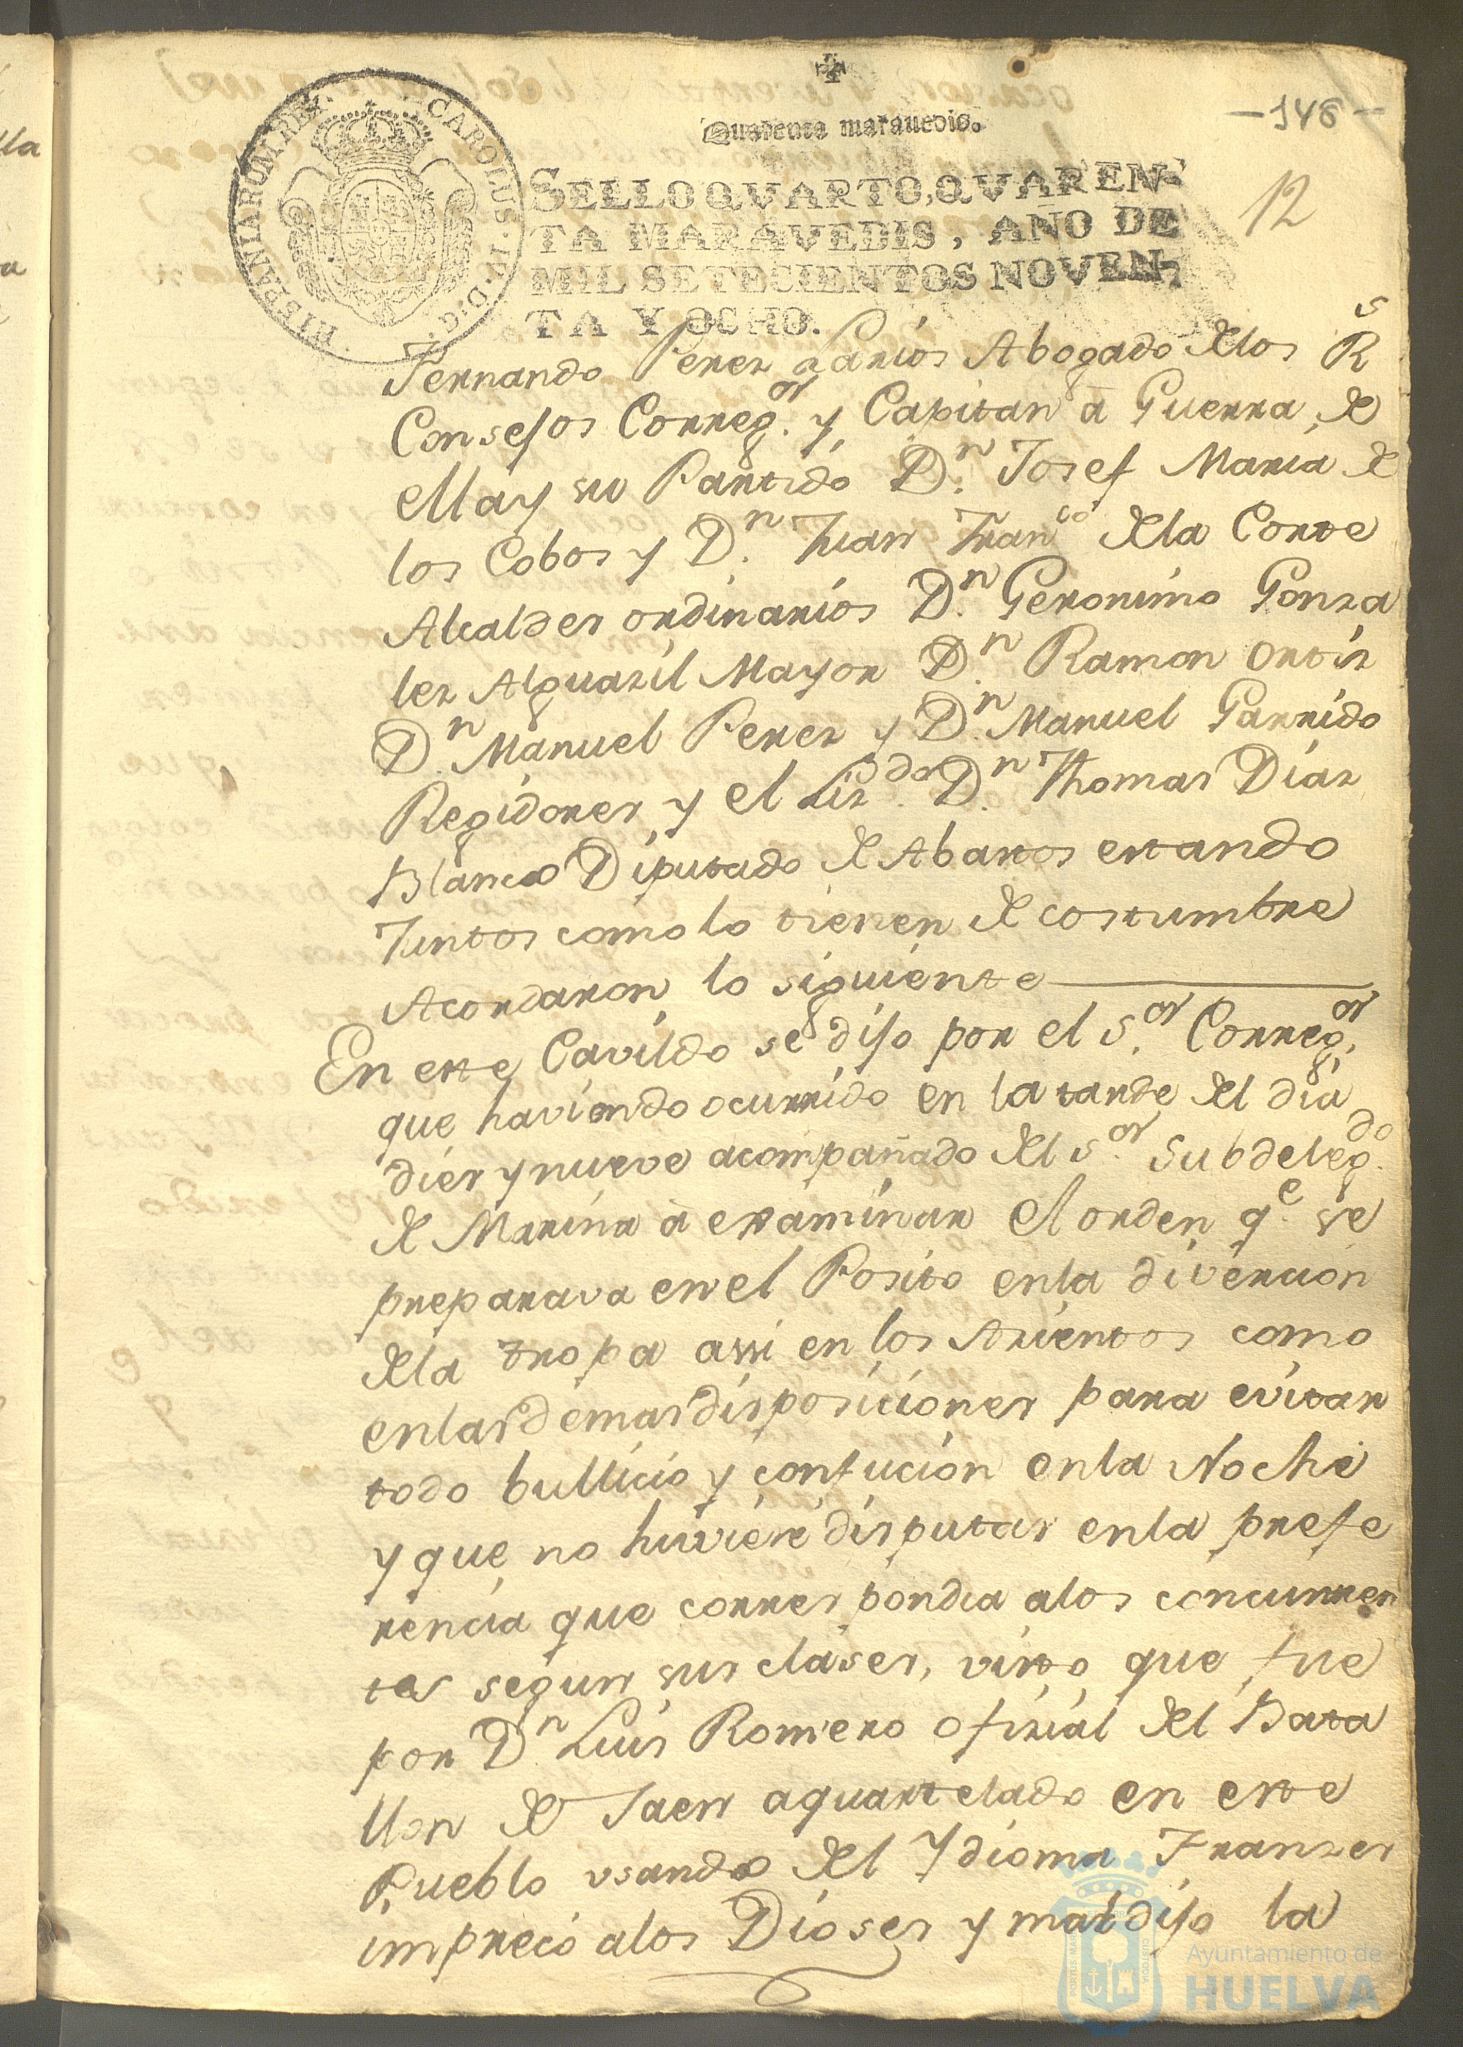 -148-
12
Quarenta marauedis.
SELLO QVARTO, QVAREN-
TA MARAVEDIS, AÑO DE
MIL SETECIENTOS NOVEN-
TA Y OCHO.
CAROLUS·IV·D·G· HISPANIARUM REX
Fernando Perez Larios Abogado delos R.s
Consejos Correg.or y Capitan a Guerra de
ella y su Partido D.n Josef Maria de
los Cobos y D.n Juan Fran.co dela Corte
Alcaldes ordinarios D.n Geronimo Gonza
lez Alguazil Mayor D.n Ramon Ortiz
D.n Manuel Perez y D.n Manuel Garrido
Regidores y el Liz.do D.n Thomas Diaz
Blanco Diputado de Abastos estando
Juntos como lo tienen de costumbre
Acordaron lo siguiente
En este Cavildo se dijo por el S.or Correg.or
que haviendo ocurrido en la tarde del dia
diez y nueve acompañado del S.or Subdeleg.do
de Marina a examinar el orden q.e se
preparava en el Posito enla diversion
dela tropa assi en los Asientos como
enlas demas disposiciones para evitar
todo bullicio y confucion enla Noche
y que no huviere disputas enla prefe
rencia que correspondia alos concurren
tes segun sus clases, visto que fue
por D.n Luis Romero ofizial del Bata
llon de Jaen aquartelado en este
Pueblo usando del Ydioma Franzes
impreco alos Dioses y maldijo la
Ayuntamiento de
HUELVA